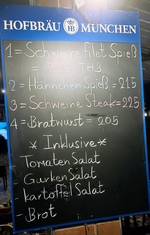 HOFBRÄU MÜNCHEN
1 = Schweine filet Spieß
= THB
2 = Hännchen Spieß = 215
3 = Schweine Steak = 225
4 = Bratwurst = 205
* Inklusive *
- Tomaten Salat
- Gurken Salat
- Kartoffel Salat
- Brot